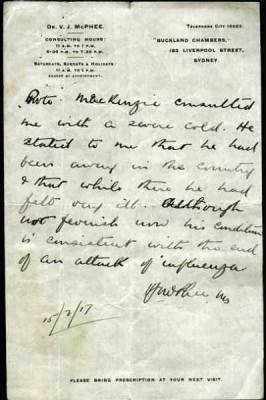 DR. V. J. McPHEE.
CONSULTING HOURS:
11 A.M. TO 1 P.M.
6-30 P.M. TO 7.30 P.M.
SATURDAYS, SUNDAYS & HOLIDAYS
11 A.M. TO 1 P.M.
EXCEPT BY APPOINTMENT.
TELEPHONE CITY
"BUCKLAND CHAMBERS,"
183 LIVERPOOL STREET,
SYDNEY.
McKenzie consulted
me with a severe cold. He
stated to me that he had
been away in the country
& that while there he had
felt very ill. Although
not feverish now his condition
is consistent with the end
of an attack of influenza
VJ McPhee
15/2/17
PLEASE BRING PRESCRIPTION AT YOUR NEXT VISIT.